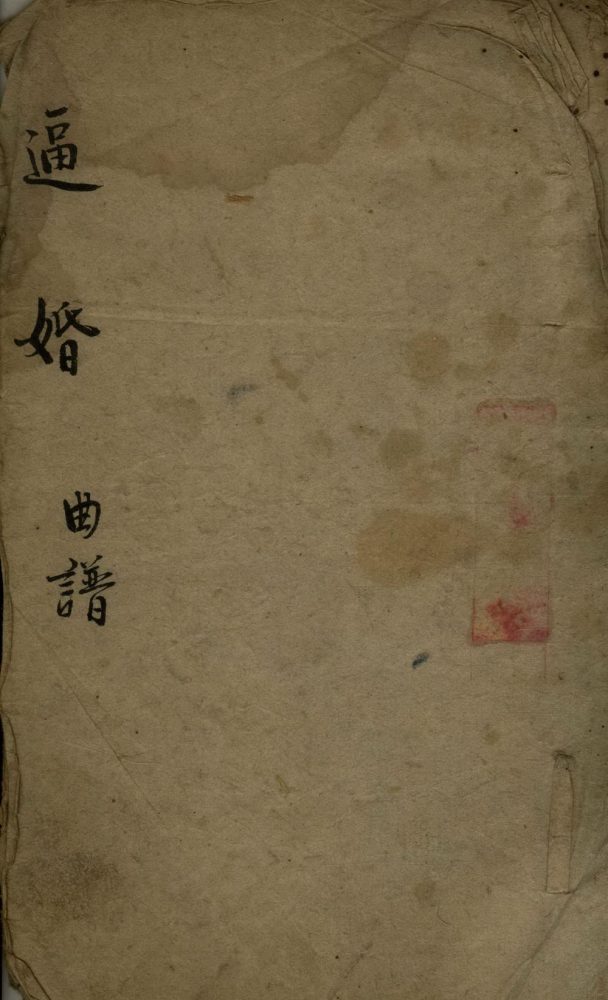 逼婚
曲譜